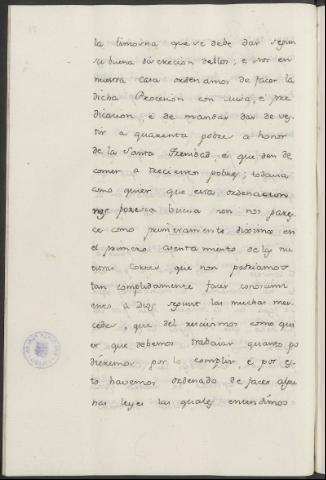 la limosna que se debe dar segun
su buena discrecion dellos; e nos en
nuestra casa ordenamos de facer la
dicha Procesion con misa, e pre
dicacion, e de mandar dar de ves
tir a quarenta pobres a honor
de la Santa Trenidad, e que den de
comer a trecientos pobres; todavia
como quier que esta ordenacion
nos paresca buena non nos pares
ce como primeramente diximos en
el primero asentamento de las nu
estras Cortes que non podriamos
tan complidamente facer conoscimi
ento a dios segunt las muchas mer
cedes, que del rescivimos como qui
er que debemos trabajar quanto po
dieremos por lo complir, e por es
to havemos ordenado de facer algu
nas leyes las quales entendimos